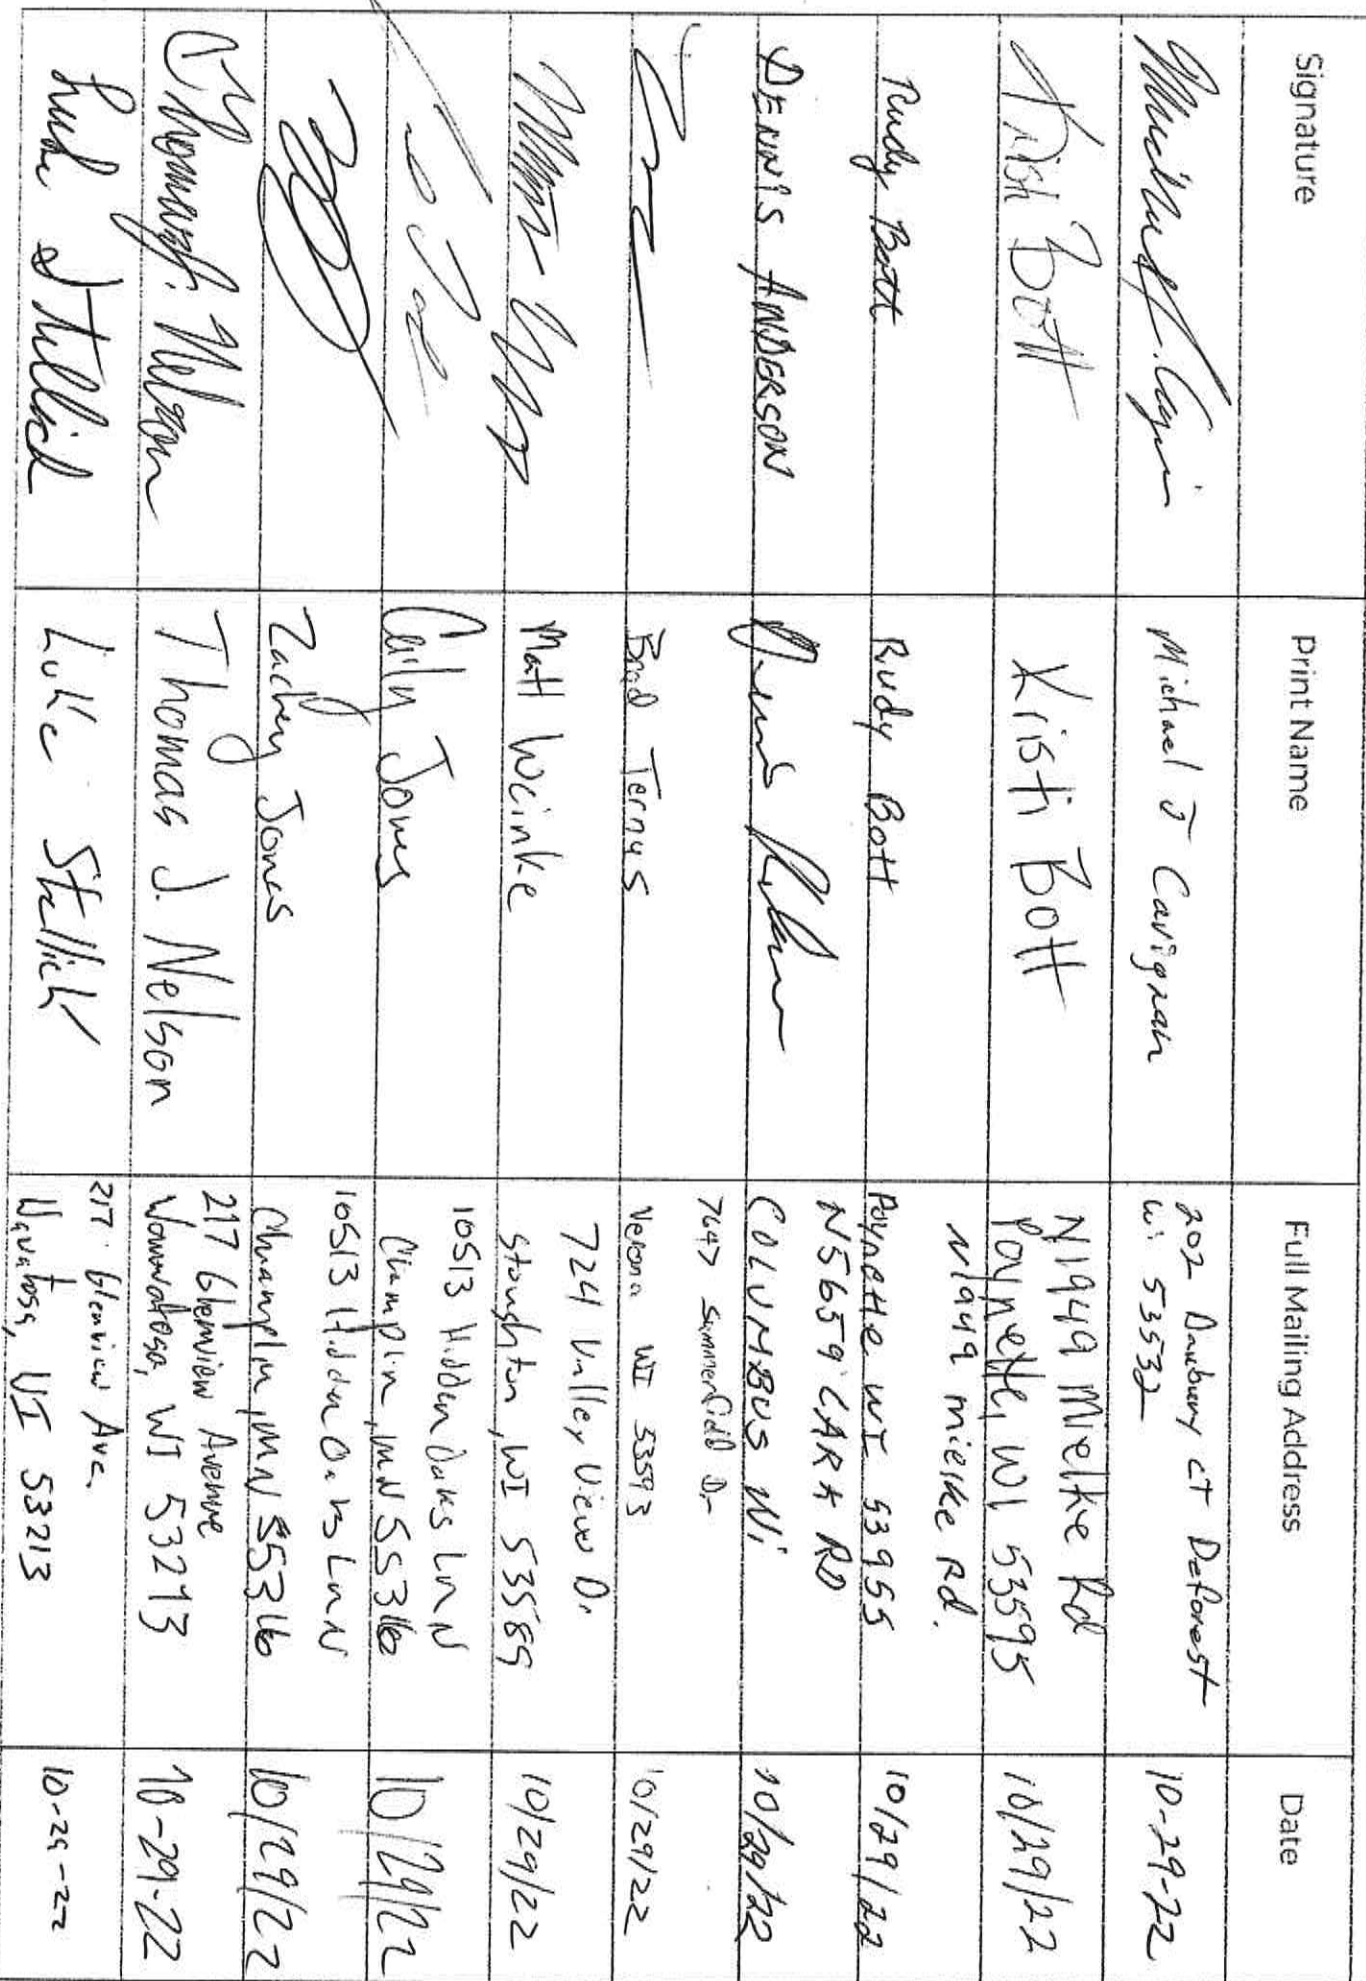 Signature Print Name Full Mailing Address Date
Michael J Cavignan
202 Danbury ct Deforest
wi 53532
10-29-22
Kristi Bott
Kristi Bott
N1949 Mielke Rd
Poynette, WI 53595
10/29/22
Rudy Bott
Rudy Bott
N1949 mielke Rd.
Poynette WI 53955
10/29/22
DENNIS ANDERSON
N5659 RD
COLUMBUS Wi
10/29/22
Brad Ternus
7647 Summerfield Dr
Verona WI 53593
10/29/22
Matt Weinke
724 Valley View Dr
Stoughton, WI 53589
10/29/22
Jones
10513 Hidden Oaks Ln N
Champlin, MN 55316
10/29/22
Zachery Jones
10513 Hidden Oaks Ln N
Champlin, MN 55316
10/29/22
Thomas J. Nelson
Thomas J. Nelson
217 Glenview Avenue
Wauwatosa, WI 53213
10-29-22
Luke Stellick
Luke Stellick
217 Glenview Ave.
53213
10-29-22